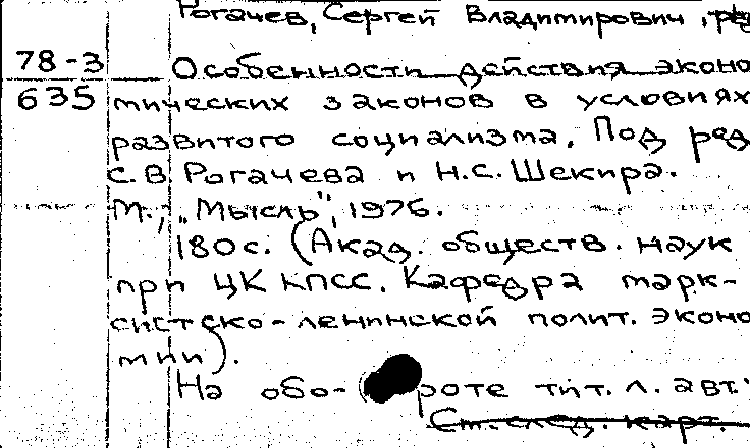 Рогачев, Сергей Владимирович, ре
78-3 Особенности действия эконо
635 мических законов в условиях
развитого социализма. Под ред
С.В. Рогачева и Н.С. Шекира.
М., „Мысль", 1976.
180 с. (Акад. обществ. наук
при ЦК КПСС. Кафедра марк-
систско-ленинской полит. эконо
мии).
На обо- роте тит. л. авт.:
См. след. карт.